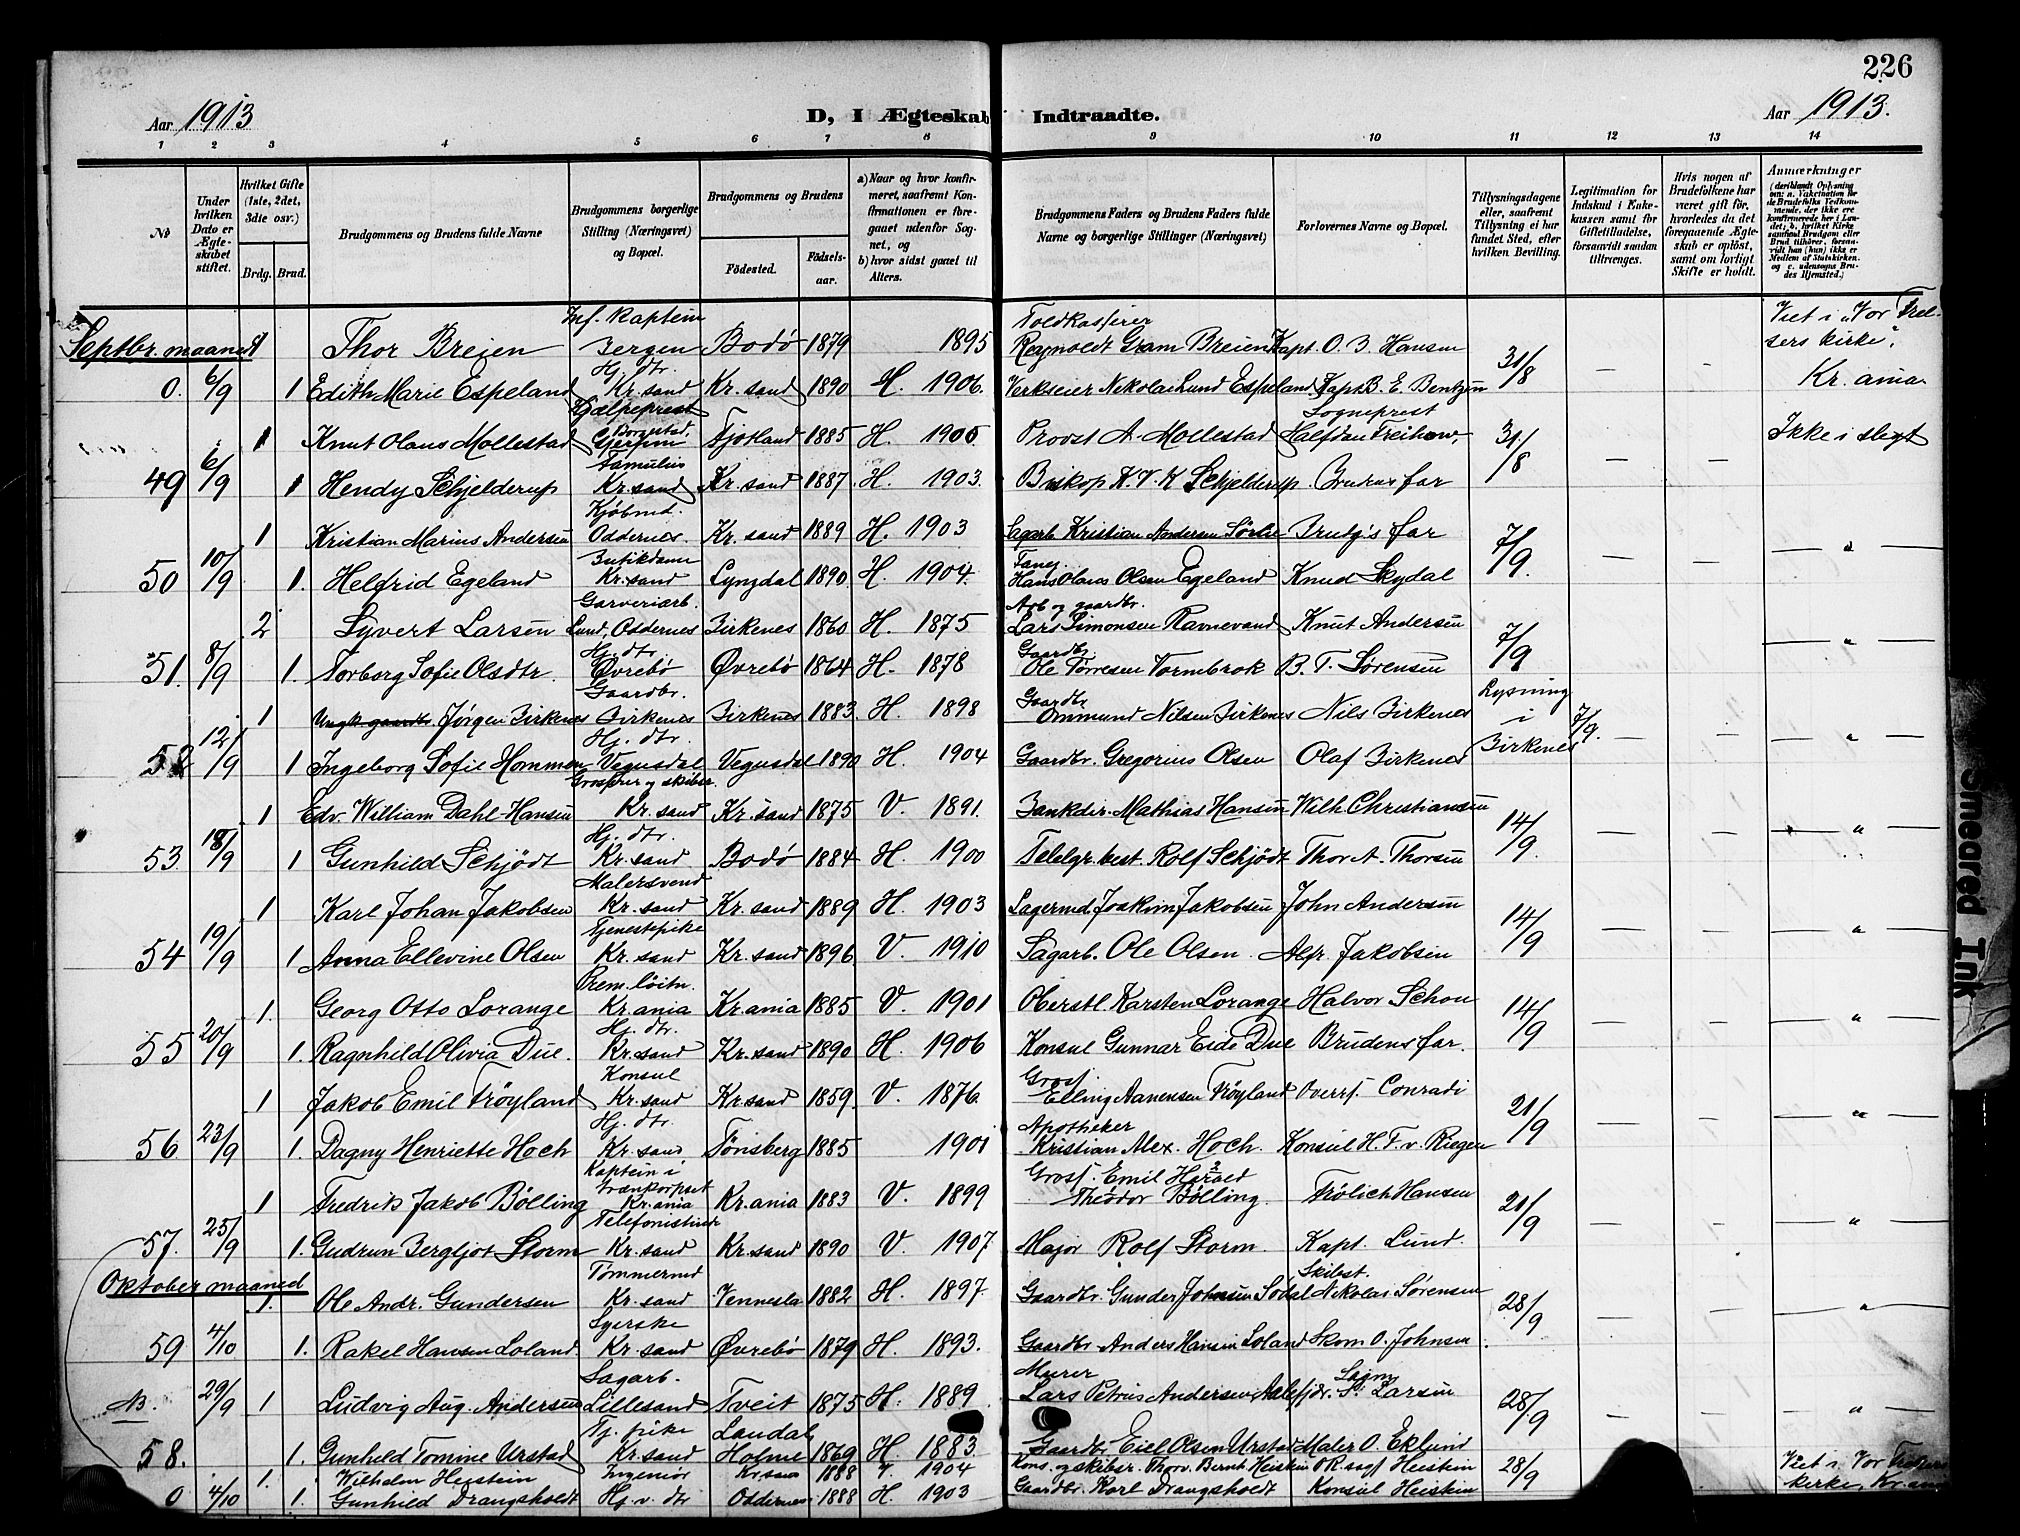 226
Aar 1913 D, I Ægteskab Indtraadte. Aar 1913.
1 2 3 4 5 6 7 8 9 10 11 12 13 14
№
Under hvilken Dato er Ægteskabet stiftet.
Hvilket Gifte (1ste, 2det, 3die osv.)
Brdg. Brud.
Brudgommens og Brudens fulde Navne
Brudgommens borgerlige Stilling (Næringsvei) og Bopæl.
Brudgommens og Brudens
Fødested. Fødselsaar.
a) Naar og hvor konfirmeret, saafremt Konfirmationen er foregaaet udenfor Sognet, og
b) hvor sidst gaaet til Alters.
Brudgommens Faders og Brudens Faders fulde Navne og borgerlige Stillinger (Næringsvei)
Forlovernes Navne og Bopæl.
Tillysningsdagene eller, saafremt Tillysning ei har fundet Sted, efter hvilken Bevilling.
Legitimation for Indskud i Enkekassen samt for Giftetilladelse, forsaavidt saadan tiltrænges.
Hvis nogen af Brudefolkene har været gift før, hvorledes da det foregaaende Ægteskab er opløst, samt om lovligt Skifte er holdt.
Anmærkninger
Septbr. maaned
Inf. Kaptein Toldkasserer Viet i "Vor Frel-
1 Thor Breien Bergen Bodø 1879 1895 Reynoldt Gram Breien Kapt. O. B. Hansen 31/8 sers kirke",
Hj. dtr.
0. 6/9 1 Edith Marie Espeland Kr. sand Kr. sand 1890 H. 1906. Verkseier Nikolai Lund Espeland Kapt. B. E. Bentzen — — Kr. ania
Hjælpeprest Sogneprest
1 Knut Olaus Mollestad Borgestad, Gjerpen Fjotland 1885 H. 1905 Provst A. Mollestad Halfdan Freihow, 31/8 Ikke i slegt
Familie
49 6/9 1 Hendy Schjelderup Kr. sand Kr. sand 1887 H. 1903. Biskop K. V. K Schjelderup Brudens far — —
Kjøbmd.
1 Kristian Marius Andersen Oddernes. Kr. sand 1889 H. 1903 Sagarb. Kristian Andersen Sørlie Brudg's far 7/9
Butikdame Fang.
50 10/9 1. Helfrid Egeland Kr. sand Lyngdal 1890. H. 1904. Hans Olaus Olsen Egeland Knud Skydal — — — " —
Garveriarb. Arb og gaardbr.
2 Syvert Larsen Lund, Oddernes Birkenes 1860 H. 1875 Lars Simonsen Ravnevand Knut Andersen 7/9
Hj. dtr. Gaardbr.
51. 8/9 1. Torborg Sofie Olsdtr. Øvrebø Øvrebø 1864 H. 1878 Ole Tørresen Vormbrok B. T. Sørensen — " —
Gaardbr. Gaardbr. Lysning
1 Jørgen Birkenes Birkenes Birkenes 1883. H. 1898 Ommund Nilsen Birkenes Nils Birkenes i 7/9.
Hj. dtr.
52 12/9 1 Ingeborg Sofie Hommen Vegusdal Vegusdal 1890 H. 1904 Gaardbr. Gregorius Olsen Olaf Birkenes Birkenes — " —
Grosserer og skibsr.
1 Edv. William Dahl-Hansen Kr. sand Kr. sand 1875 V. 1891. Bankdir. Mathias Hansen Wilh Christiansen 14/9
Hj. dtr.
53. 18/9 1 Gunhild Schjødt Kr. sand Bodø 1884 H. 1900 Telelgr. best. Rolf Schjødt Thor A. Thorsen — — — " —
Malersvend
1 Karl Johan Jakobsen Kr. sand Kr. sand 1889 H. 1903 Lagermd. Joakim Jakobsen John Andersen 14/9
Tjenestepike
54 19/9 1 Anna Ellevine Olsen Kr. sand Kr. sand 1896 V. 1910 Sagarb. Ole Olsen. Alfr. Jakobsen — — — " —
Prem. løitn.
1. Georg Otto Lorange Kr. ania Kr. ania 1885 V. 1901 Oberstl. Karsten Lorange Halvor Schou 14/9
Hj. dtr.
55 20/9 1. Ragnhild Olivia Due. Kr. sand Kr. sand 1890 H. 1906 Konsul Gunnar Eide Due Brudens far. — — — " —
Konsul Gross.
1 Jakob Emil Frøyland Kr. sand Kr. sand 1859. V. 1876. Elling Aanensen Frøyland Overrs. Conradi 21/9
Hj. dtr. Apotheker
56 23/9 1. Dagny Henriette Hoch Kr. sand Tønsberg 1885 1901 Kristian Alex. Hoch. Konsul H. F. v. Riegen — — — " —
Kaptein i Trænkorpset Gross. Emil Harald
1 Fredrik Jakob Bølling Kr. ania Kr. ania 1883 V. 1899 Theodor Bølling. Frølich Hansen 21/9
Telefonistinde
57. 25/9 1. Gudrun Bergljot Storm Kr. sand Kr. sand 1890 V. 1907 Major Rolf Storm. Kapt. Lund. — — — " —
Oktober maaned
Tømmermd Skibst.
1. Ole Andr. Gundersen Kr. sand Vennesla 1882 H. 1897. Gaardbr. Gunder Johnsen Sødal Nikolai Sørensen 28/9
Syerske
59 4/10 1. Rakel Hansen Loland Kr. sand Øvrebø 1879 H. 1893. Gaardbr. Anders Hansen Loland Skom O. Johnsen — " —
Sagarb. Murer
N. 29/9 1 Ludvig Aug. Andersen Lillesand Tveit 1875 H. 1889 Lars Petrus Andersen Aalefjær. Larsen 28/9
Tj. pike Laudal
58. 1. Gunhild Tomine Urstad Kr. sand Holme 1869 H. 1883 Gaardbr Eiel Olsen Urstad Maler O. Eklund — — — " —
1. Wilhelm Heistein Ingeniør Kr. sand 1888 V. 1904 Kons. og skibsr. Thorv. Bernh Heistein OR.sagf Heistein 28/9 Viet i Vor Frelsers
0 4/10 1. Gunhild Drangsholdt Hj. v. dtr Oddernes 1888 H. 1903 Gaardbr. Karl Drangsholdt Konsul Heistein kirke, Kr. ania
Smeared Ink